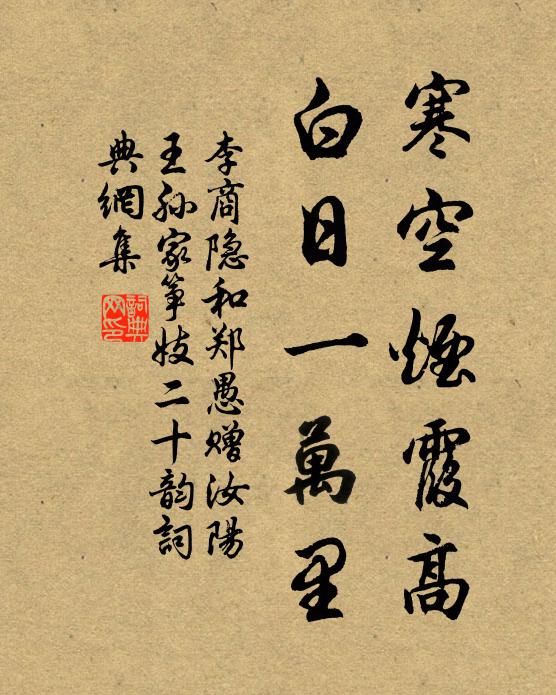 寒空煙霞高
白日一萬里
李商隐和郑愚赠汝陽
王孙家筝妓二十韵詞
典網集
詞典网印